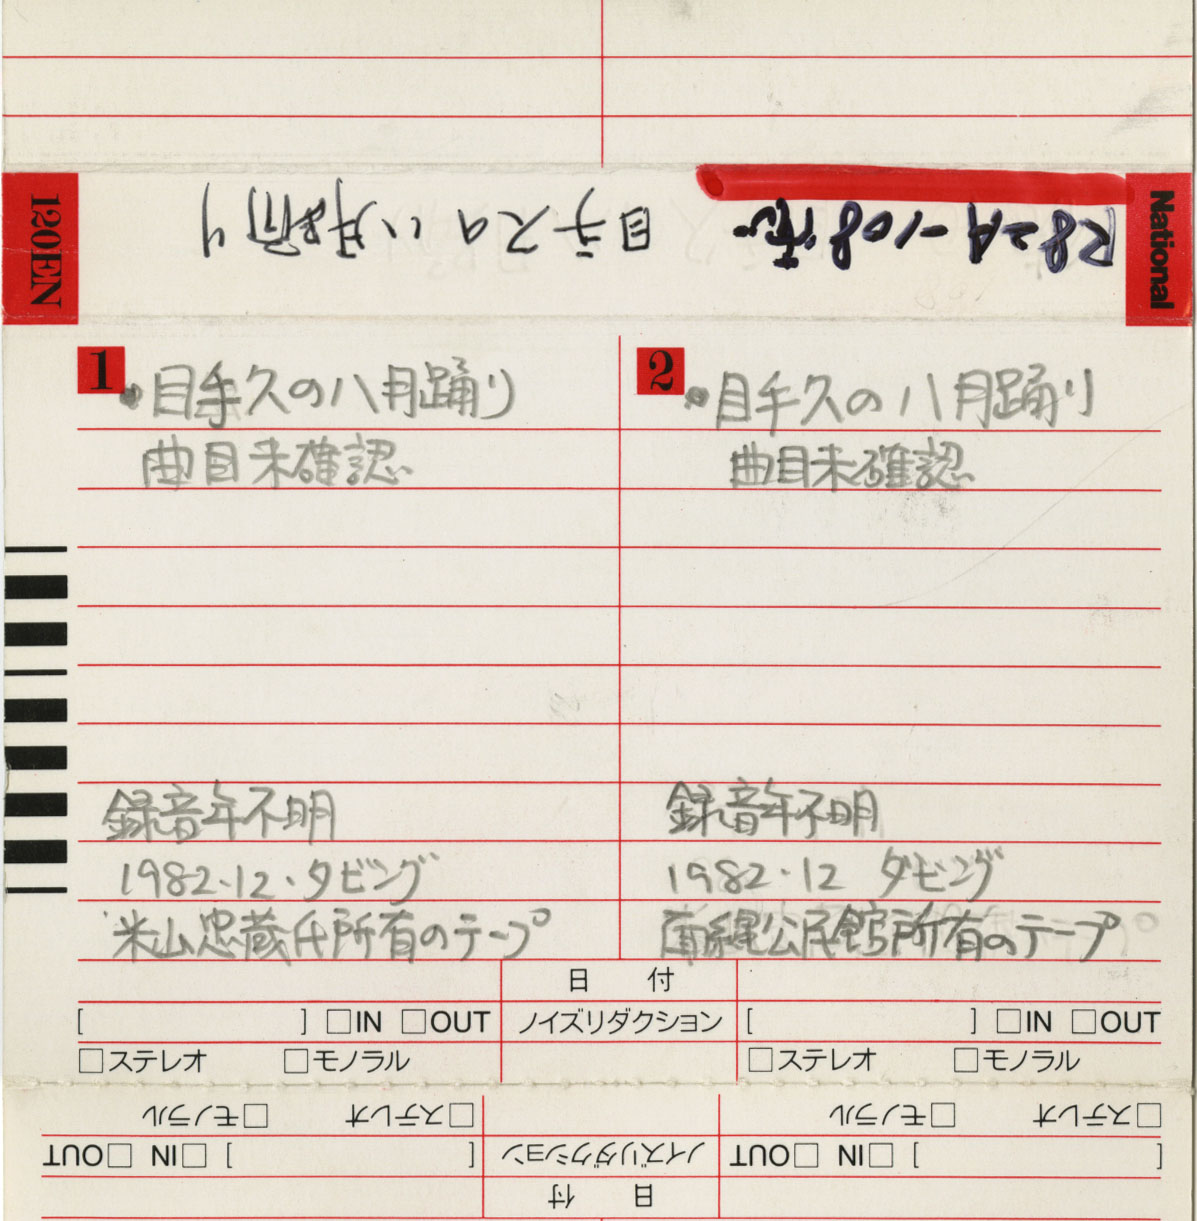 National
R82A-108
目手久の八月踊り
120EN
1
・目手久の八月踊り
曲目未確認
録音年不明
1982.12.ダビング
米山忠蔵氏所有のテープ
2
・目手久の八月踊り
曲目未確認
録音年不明
1982.12 ダビング
面縄公民館所有のテープ
日 付
[ ] □IN □OUT ノイズリダクション [ ] □IN □OUT
□ステレオ □モノラル □ステレオ □モノラル
日 付
[ ] □IN □OUT ノイズリダクション [ ] □IN □OUT
□ステレオ □モノラル □ステレオ □モノラル